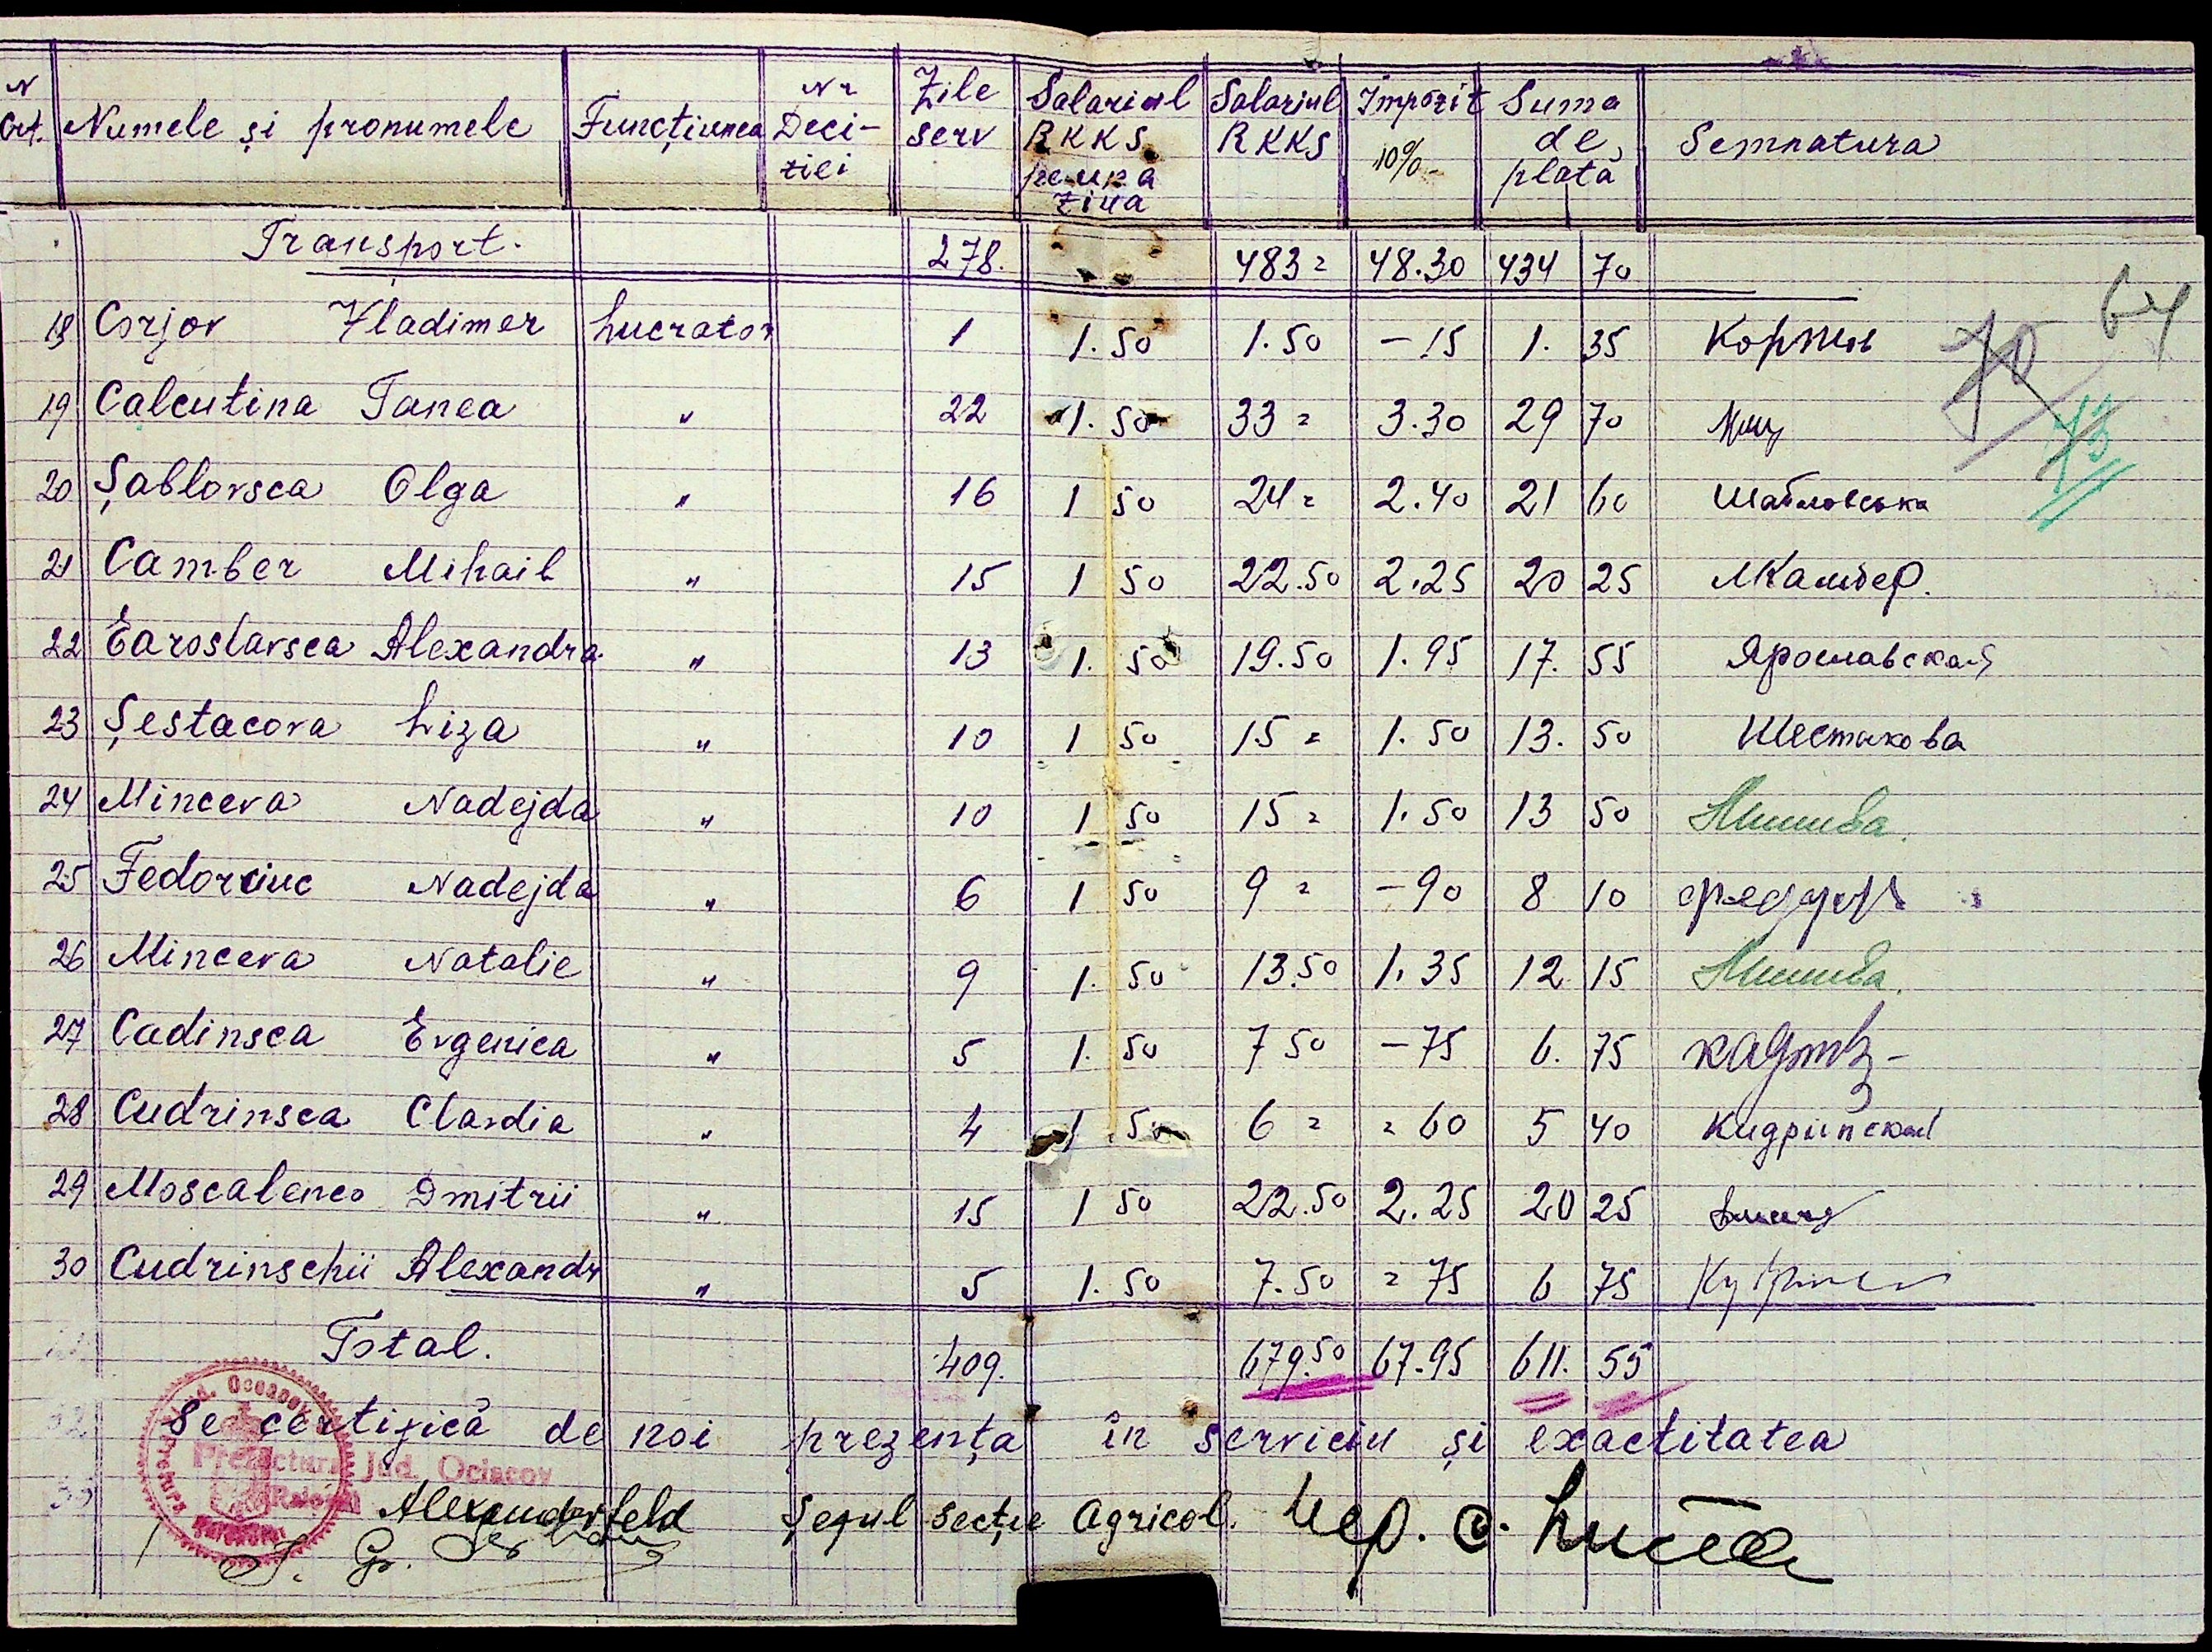 N Crt. Numele și pronumele Funcțiunea Nr Deci-ziei Zile serv Salariul RKKS pe una ziua Salariul RKKS Impozit 10% Suma de plată Semnatura
Transport. 278. 483= 48.30 434 70
64
70
73
18 Corjov Vladimer Lucrator 1 1.50 1.50 -15 1. 35 Коржов
19 Calcutina Tanea " 22 1.50 33= 3.30 29 70
20 Șablovsca Olga " 16 1 50 24= 2.40 21 60 Шабловська
21 Camber Mihail " 15 1 50 22.50 2.25 20 25 МКамбер.
22 Earoslavsca Alexandra " 13 1. 50 19.50 1.95 17. 55 Ярославская
23 Șestacova Liza " 10 1 50 15= 1.50 13. 50 Шестакова
24 Minceva Nadejda " 10 1 50 15= 1.50 13 50
25 Fedorciuc Nadejda " 6 1 50 9= -90 8 10
26 Minceva Natalie " 9 1. 50 13.50 1.35 12 15
27 Cadinsca Evgenica " 5 1. 50 7 50 -75 6. 75
28 Cudrinsca Clavdia " 4 1 50 6= =60 5 40 Кидринская
29 Moscalenco Dmitrii " 15 1 50 22.50 2.25 20 25
30 Cudrinschii Alexandr " 5 1.50 7.50 =75 6 75
Total. 409. 679.50 67.95 611. 55
Se certifică de noi prezența în serviciu și exactitatea
Prefectura Jud. Ociacov
Alexanderfeld Șeful Secție Agricol.
Gr.